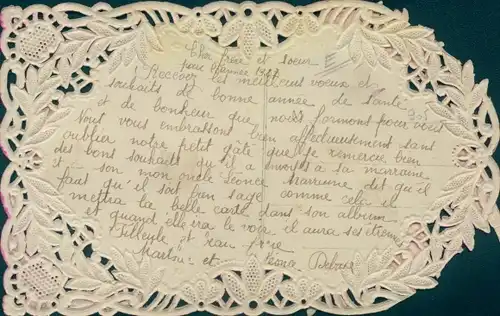 Cher frère et soeur
pour l'année 1947
Recevez les meilleurs voeux et
souhaits de bonne année de santé
et de bonheur que nous formons pour vous
Nous vous embrassons bien affectueusement sans
oublier notre petit gâté que je remercie bien
des bons souhaits qu'il a envoyés à sa marraine
et à son mon oncle Léonce Marraine dit qu'il
faut qu'il soit bien sage comme cela il
mettra la belle carte dans son album
et quand elle ira le voir il aura ses étrennes
filleule et
et Léonce